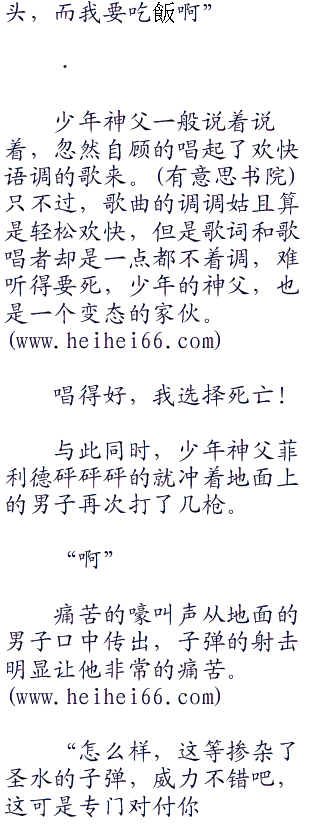 头，而我要吃飯啊”
．
少年神父一般说着说
着，忽然自顾的唱起了欢快
语调的歌来。(有意思书院)
只不过，歌曲的调调姑且算
是轻松欢快，但是歌词和歌
唱者却是一点都不着调，难
听得要死，少年的神父，也
是一个变态的家伙。
(www.heihei66.com)
唱得好，我选择死亡！
与此同时，少年神父菲
利德砰砰砰的就冲着地面上
的男子再次打了几枪。
“啊”
痛苦的嚎叫声从地面的
男子口中传出，子弹的射击
明显让他非常的痛苦。
(www.heihei66.com)
“怎么样，这等掺杂了
圣水的子弹，威力不错吧，
这可是专门对付你